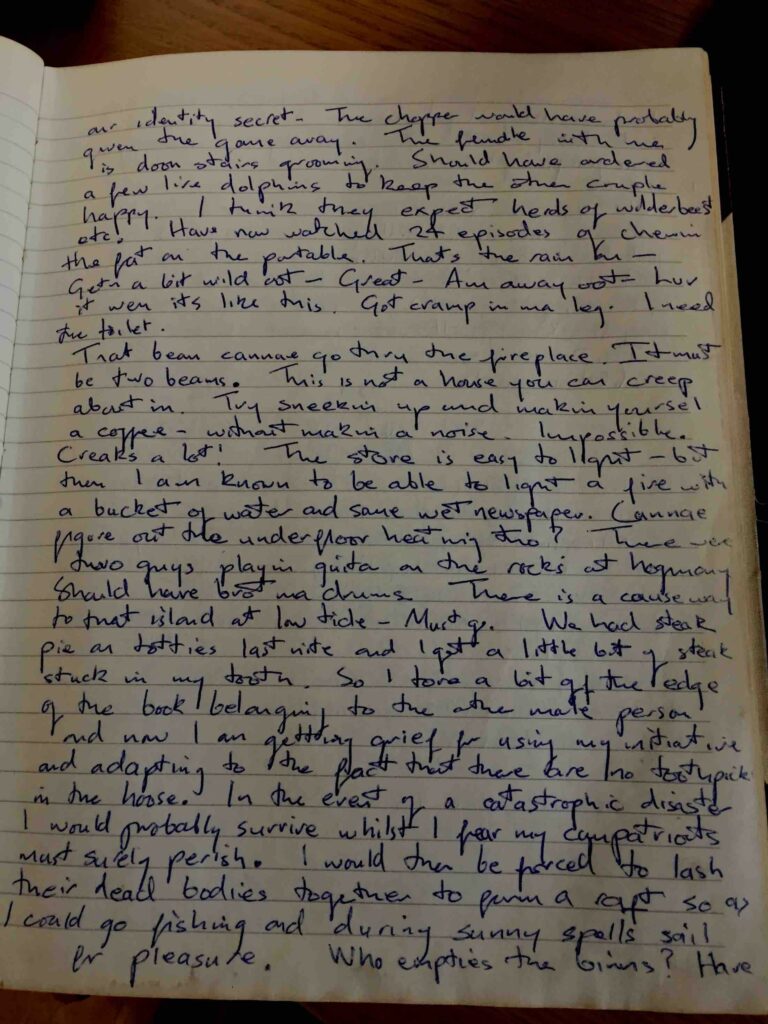 our identity secret - The chopper would have probably
given the game away. The female with me
is doon stairs grooming. Should have ordered
a few live dolphins to keep the other couple
happy. I think they expect herds of wilderbeest
etc. Have now watched 24 episodes of chewin
the fat on the portable. That's the rain on -
Gettn a bit wild oot - Great - Am away oot - Luv
it wen its like this. Got cramp in ma leg. I need
the toilet.
That beam cannae go thru the fireplace. It must
be two beams. This is not a house you can creep
about in. Try sneekin up and makin yoursel
a coffee - without makin a noise. Impossible.
Creaks a lot! The stove is easy to light - but
then I am known to be able to light a fire with
a bucket of water and some wet newspaper. Cannae
figure out the underfloor heating tho? There were
two guys playin guita on the rocks at hogmany
Should have brot ma drums. There is a causeway
to that island at low tide - Must go. We had steak
pie an totties last nite and I got a little bit of steak
stuck in my tooth. So I tore a bit off the edge
of the book belonging to the other male person
and now I am getting grief for using my initiative
and adapting to the fact that there are no toothpick
in the hoose. In the event of a catastrophic disaster
I would probably survive whilst I fear my compatriots
must surely perish. I would then be forced to lash
their dead bodies together to form a raft so as
I could go fishing and during sunny spells sail
for pleasure. Who empties the binns? Have